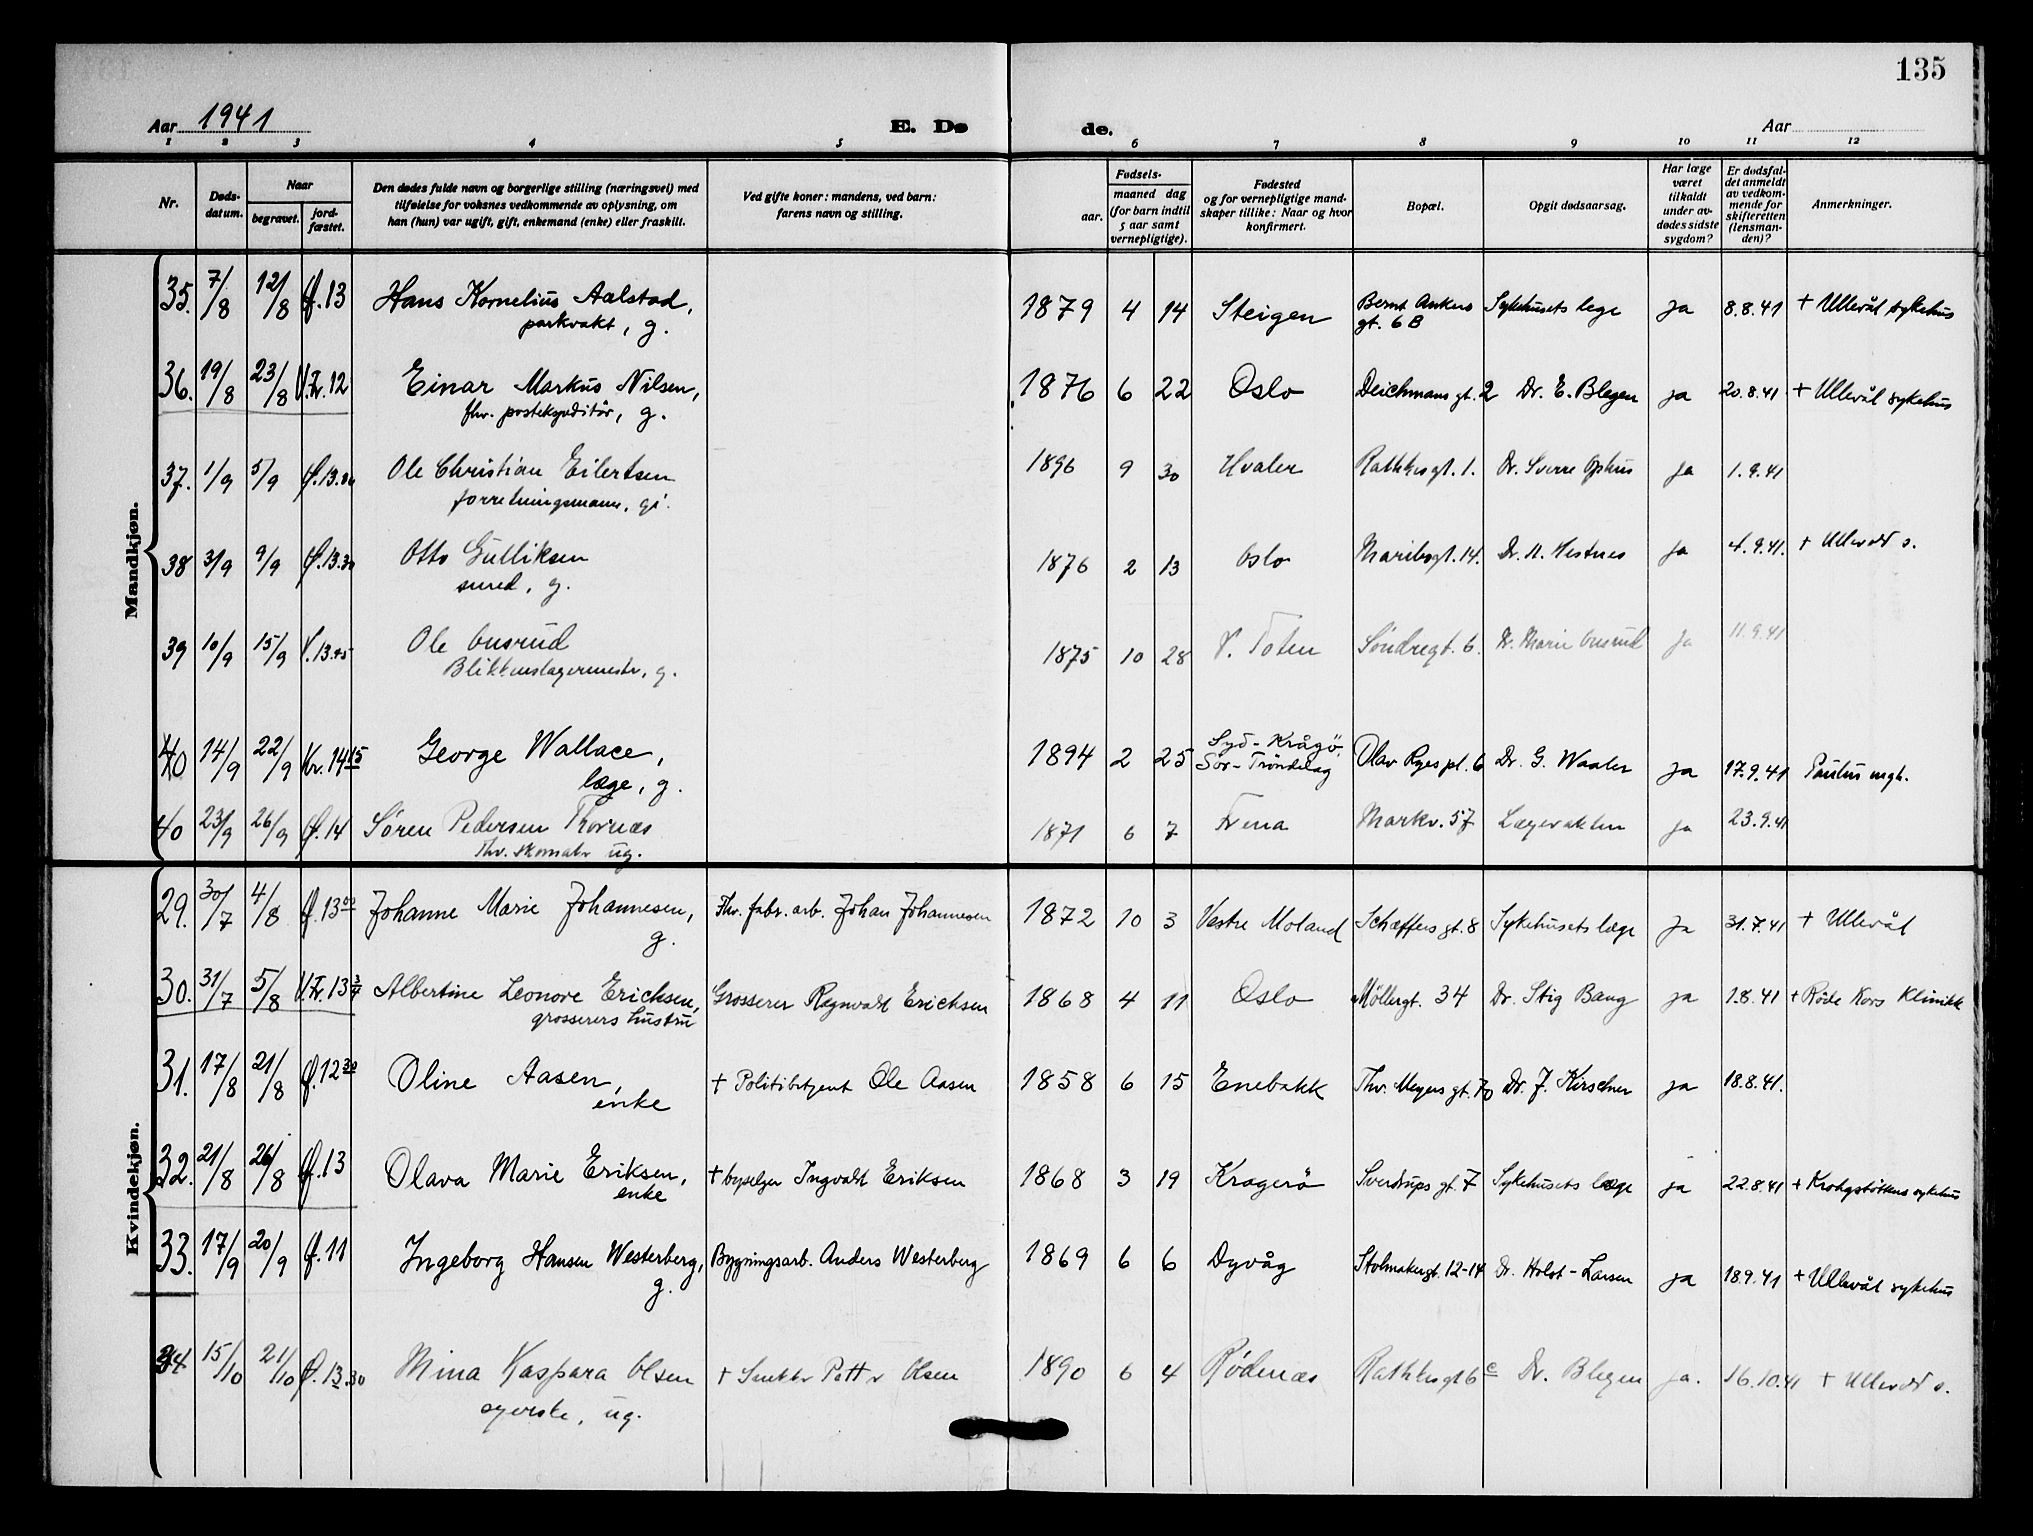 135
Aar 1941
E. Dø
de.
Aar
1 2 3 4 5 6 7 8 9 10 11 12
Nr.
Døds-
datum.
Naar
begravet.
jord-
fæstet.
Den dødes fulde navn og borgerlige stilling (næringsvei) med
tilføielse for voksnes vedkommende av oplysning, om
han (hun) var ugift, gift, enkemand (enke) eller fraskilt.
Ved gifte koner: mandens, ved barn:
farens navn og stilling.
Fødsels-
aar.
maaned dag
(for barn indtil
5 aar samt
vernepligtige).
Fødested
og for vernepligtige mand-
skaper tillike: Naar og hvor
konfirmert.
Bopæl.
Opgit dødsaarsag.
Har læge
været
tilkaldt
under av-
dødes sidste
sygdom?
Er dødsfal-
det anmeldt
av vedkom-
mende for
skifteretten
(lensman-
den)?
Anmerkninger.
Mandkjøn.
35. 7/8 12/8 Ø.13 Hans Kornelius Aalstad, 1879 4 14 Steigen Bernt Ankers Sykehusets lege ja 8.8.41 + Ullevål sykehus
parkvakt, g. gt. 6 B
36. 19/8 23/8 V.Kr.12 Einar Markus Nilsen, 1876 6 22 Oslo Deichmans gt. 2 Dr. E. Blegen ja 20.8.41 + Ullevål sykehus
fhv. postekspeditør, g.
37. 1/9 5/9 Ø.13.30 Ole Christian Eilertsen 1896 9 30 Hvaler Rathkesgt. 1. Dr. Sverre Ophus ja 1.9.41
forretningsmann, gi.
38 3/9 9/9 Ø.13.30 Otto Gulliksen 1876 2 13 Oslo Maribogt. 14. Dr. H. Hestnes ja 4.9.41. + Ullevål s.
smed, g.
39 10/9 15/9 V.13.45 Ole Busrud 1875 10 28 V. Toten Søndregt. 6. Dr. Marie Busrud Ja 11.9.41
Blikkenslagermester, g.
40 14/9 22/9 Kr. 14 15 George Wallace, 1894 2 25 Syd-Krågø, Sør-Trøndelag Olav Ryes pl. 6 Dr. G. Waaler ja 17.9.41 Paulus mgh.
læge, g.
40 23/9 26/9 Ø.14 Søren Pedersen Thornæs 1871 6 7 Frena Markv. 57 Lægevakten ja 23.9.41
Fhv. skomaker ug.
Kvindekjøn.
29. 30/7 4/8 Ø.13 00 Johanne Marie Johannesen, Fhv. fabr. arb. Johan Johannesen 1872 10 3 Vestre Moland Schæffers gt. 8 Sykehusets læge Ja 31.7.41 + Ullevål
g.
30. 31/7 5/8 V.Kr. 13 3/4 Albertine Leonore Erichsen, Grosserer Ragnvald Erichsen 1868 4 11 Oslo Møllergt. 34 Dr. Stig Bang ja 1.8.41 + Røde Kors Klinikk
grosserers hustru
31. 17/8 21/8 Ø.12 30 Oline Aasen, + Politibetjent Ole Aasen 1858 6 15 Enebakk Thv. Meyers gt. 70 Dr. J. Kirschner ja 18.8.41.
enke
32. 21/8 26/8 Ø.13 Olava Marie Eriksen, + byselger Ingvald Eriksen 1868 3 19 Kragerø Sverdrups gt. 7 Sykehusets læge ja 22.8.41 + Krohgstøttens sykehus
enke
33. 17/9 20/9 Ø.11 Ingeborg Hansen Westerberg, Bygningsarb. Anders Westerberg 1869 6 6 Dyvåg Stolmakergt. 12-14 Dr. Holst-Larsen ja 18.9.41 + Ullevål sykehus
g.
34 15/10 21/10 Ø.13.30 Mina Kaspara Olsen + Snekker Petter Olsen 1890 6 4 Rødenes Rathkesgt 6 c Dr. Blegen ja. 16.10.41 + Ullevål s.
syerske, ug.